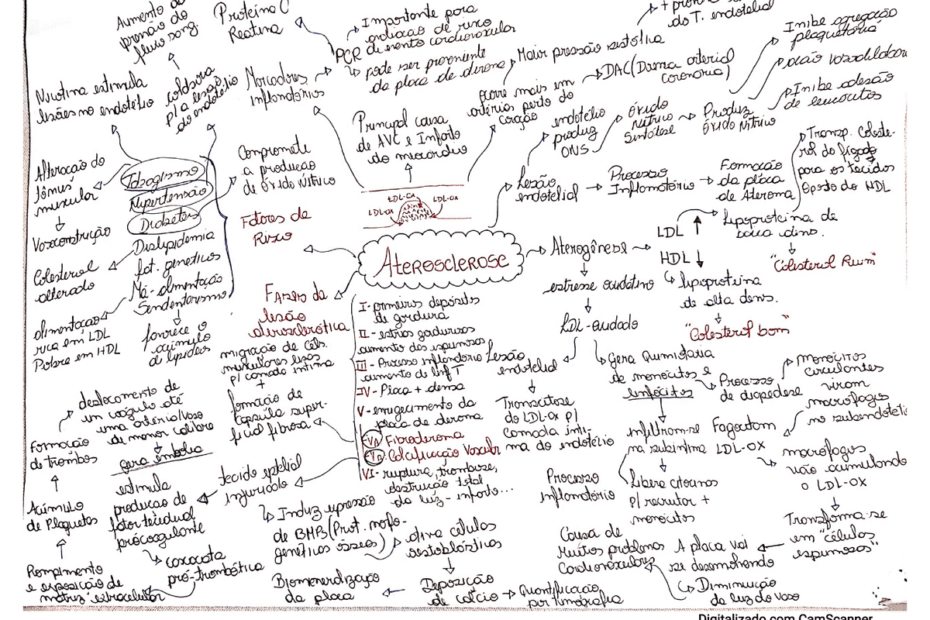 Aumento da
pressão do
fluxo sang.
Proteína C
Reativa
PCR
Importante para
avaliação de risco
de evento cardiovascular
pode ser proveniente
da placa de ateroma
Marcadores
Inflamatórios
Nicotina estimula
lesões no endotélio
colabora
p/ a lesão
do endotélio
Principal causa
de AVC e Infarto
do miocárdio
do T. endotelial
Maior pressão sistólica
Ocorre mais em
artérias perto do
coração
DAC (Doença arterial
coronária)
endotélio
produz
ONS
Óxido
Nítrico
Sintetase
Produz
Óxido Nítrico
Inibe agregação
plaquetária
ação vasodilatadora
Inibe adesão
de leucócitos
Alteração do
tônus
muscular
Vasoconstrução
Tabagismo
Hipertensão
Diabetes
Dislipidemia
fat. genéticos
Má-alimentação
Sendentarismo
Colesterol
alterado
alimentação
rica em LDL
Pobre em HDL
favorece o
acúmulo
de lipídeos
Compromete
a produção
de óxido nítrico
Fatores de
Risco
LDL-OX
LDL-OX
LDL-OX
Aterosclerose
Lesão
endotelial
Processo
Inflamatório
Formação
da placa
de Ateroma
Aterogênese
LDL ↑
lipoproteína de
baixa dens.
Transp. Coleste-
rol do fígado
para os tecidos
Oposto do HDL
"Colesterol Ruim"
HDL ↓
lipoproteína
de alta dens.
"Colesterol bom"
estresse oxidativo
LDL-oxidado
Lesão
endotelial
Transcitose
do LDL-OX p/
camada ínti-
ma do endotélio
Processo
inflamatório
Gera Quimiotaxia
de monócitos e
linfócitos
Processo
de diapedese
Monócitos
circulantes
viram
macrófagos
no subendotélio
infiltram-se
na subíntima
libera citocinas
p/ recrutar +
monócitos
Fagocitam
LDL-OX
macrófagos
vão acumulando
o LDL-OX
Transforma-se
em "células
espumosas"
A placa vai
se desenvolvendo
Causa de
Muitos problemas
Cardiovasculares
Diminuição
da luz do vaso
Fases da
lesão
aterosclerótica
I- primeiros depósitos
de gordura
II- estrias gordurosas
aumento das espumosas
III- Processo inflamatório
aumento de linf T
IV- Placa + densa
V- enrijecimento da
placa de ateroma
Va Fibroateroma
Vb Calcificação Vascular
VI- ruptura, trombose,
destruição total
da luz - infarto...
migração de céls.
musculares lisas
p/ camada íntima
+
formação de
capsula super-
ficial fibrosa
tecido epitelial
injuriado
estimula
produção de
fator tecidual
prócoagulante
cascata
pró-trombótica
deslocamento de
um coágulo até
uma artéria/vaso
de menor calibre
gera êmbolo
Formação
de trombos
Acúmulo
de Plaquetas
Rompimento
e exposição da
matriz extracelular
Induz expressão
de BMB (Prot. morfo-
genéticas ósseas)
ativa células
osteoblásticas
Deposição
de cálcio
Quantificação
por tomografia
Biomeneralização
da placa
Digitalizado com CamScanner